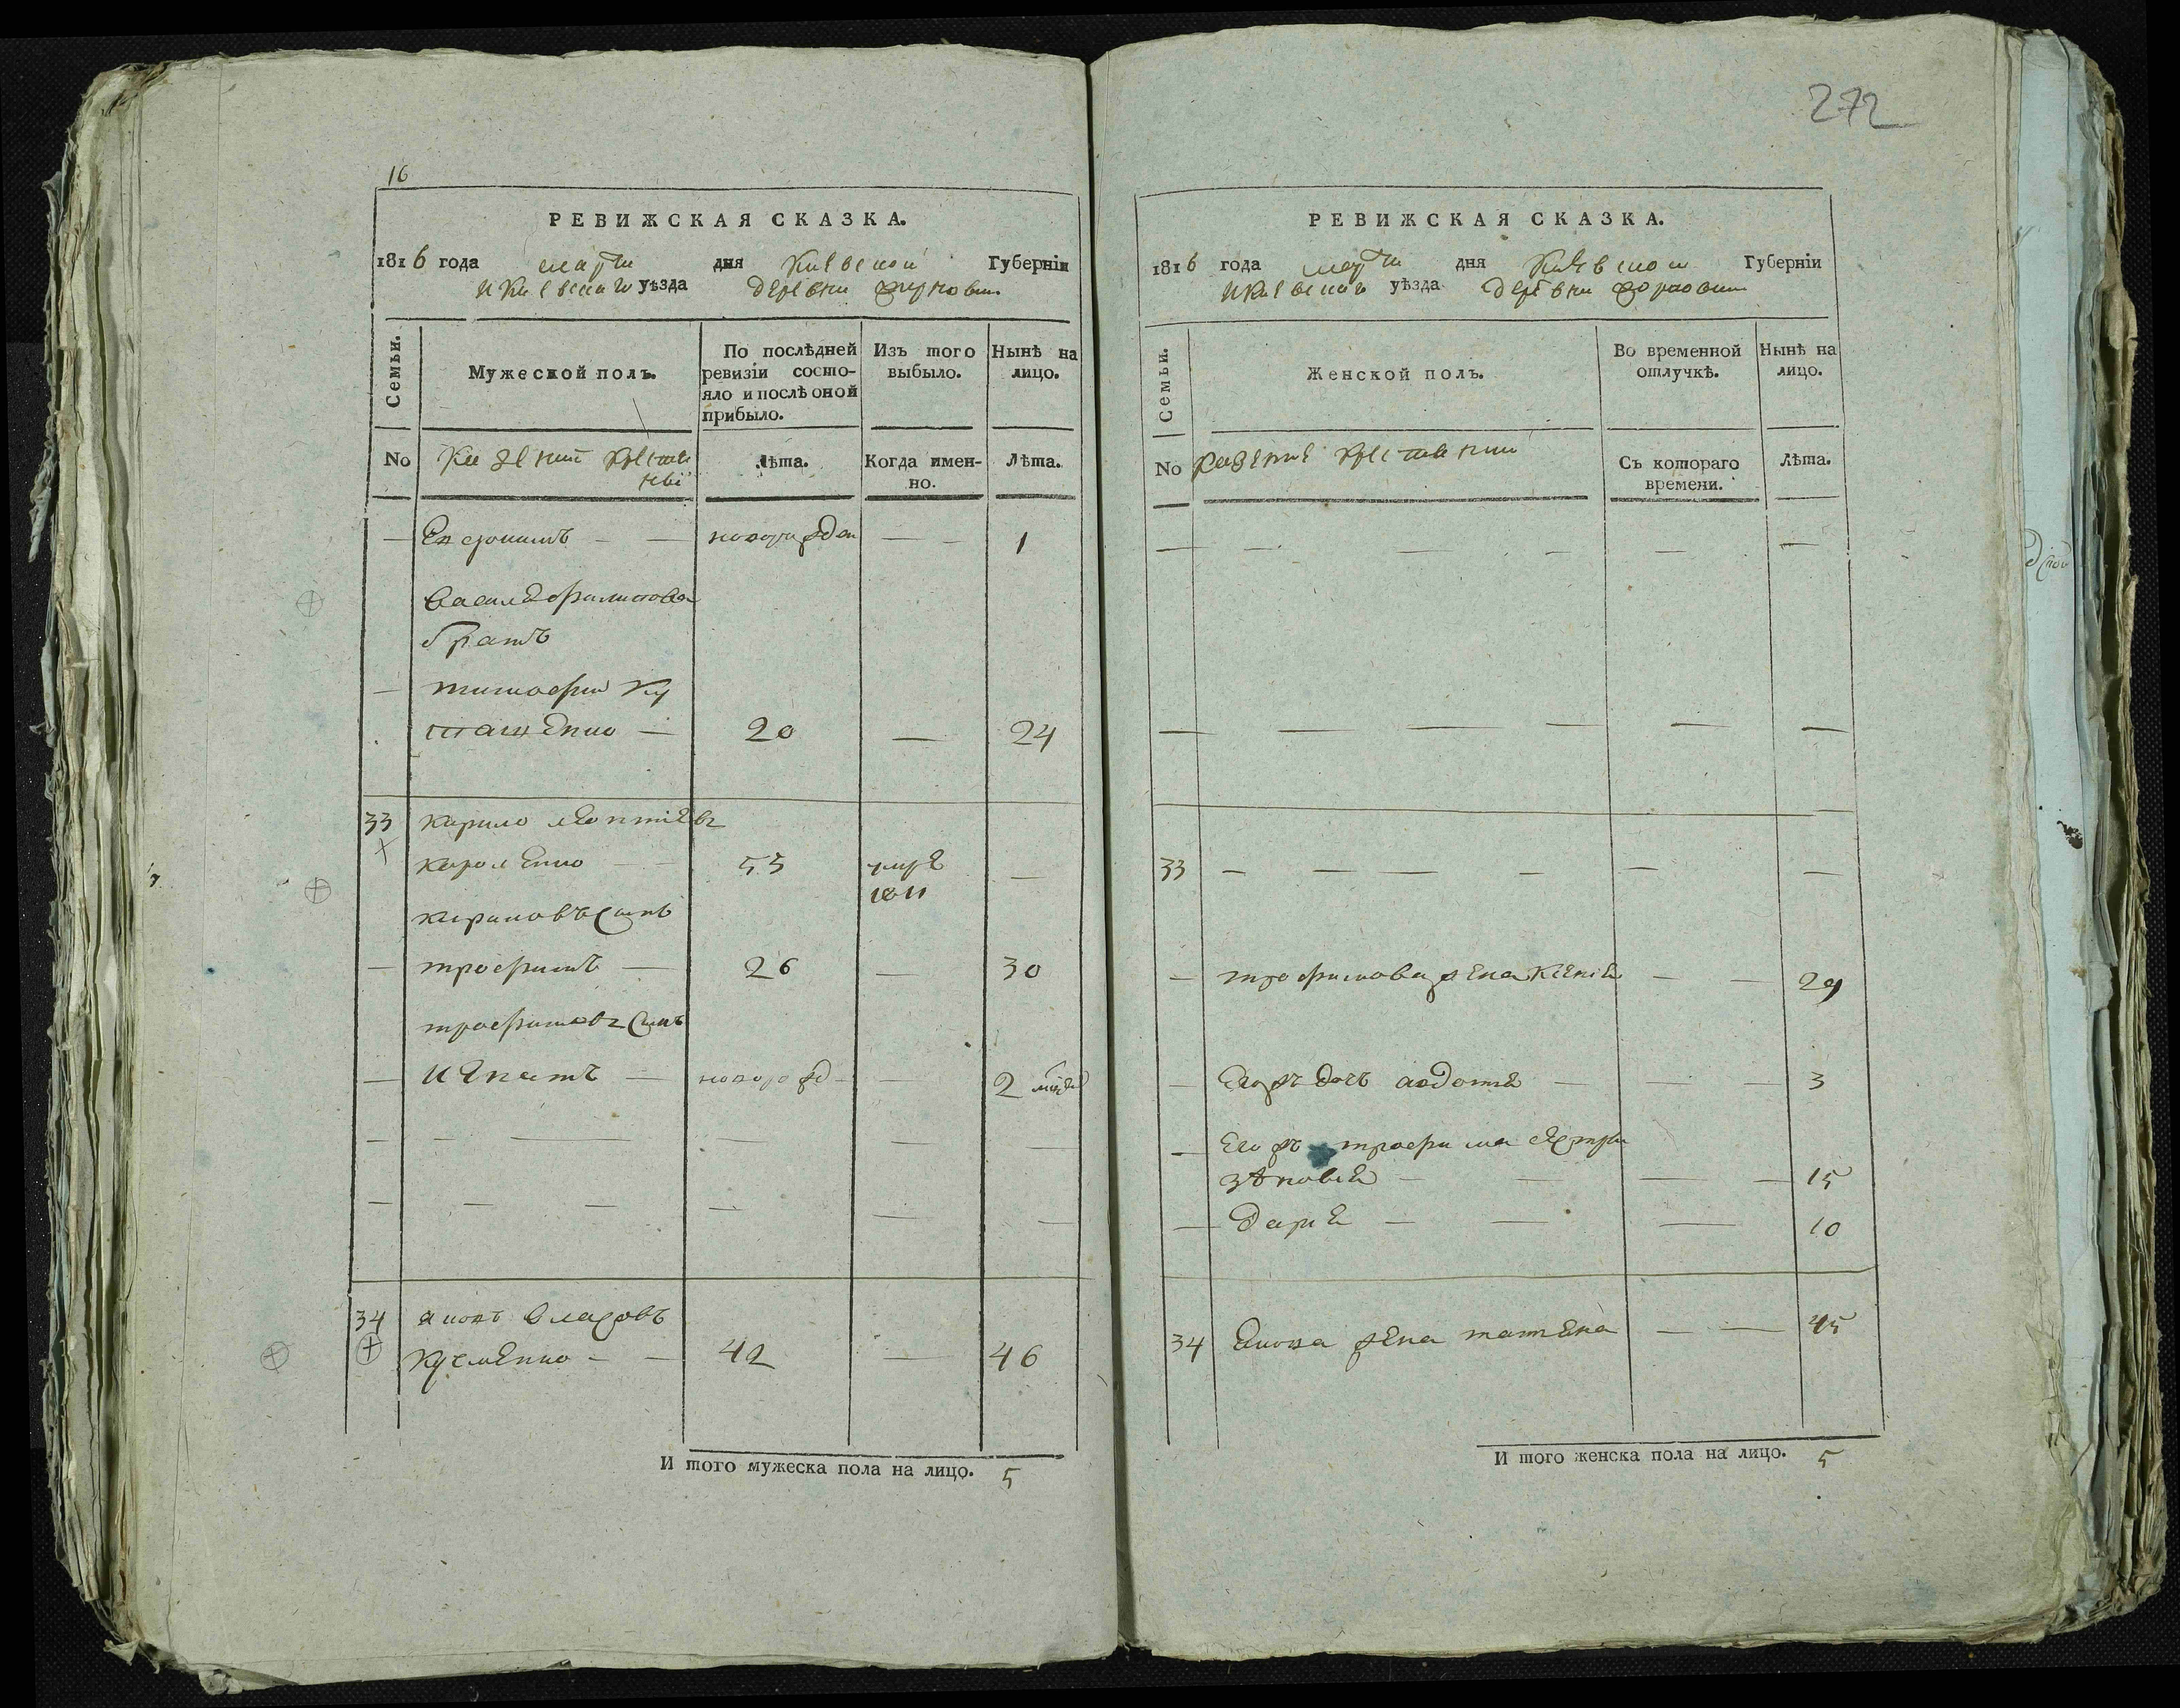 16
РЕВИЖСКАЯ СКАЗКА.
1816 года марта дня Киевской Губерніи
и Киевскаго уѣзда деревни
Семьи.
Мужеской полъ.
По послѣдней ревизіи состо-
яло и послѣ оной
прибыло.
Изъ того
выбыло.
Нынѣ на
лицо.
No
Казенніи крестя
не
Лѣта.
Когда имен-
но.
Лѣта.
— — — — — 1
брать
— Тимофей Ку
— 20 — 24
33 Кирило Леонтіевъ
— — 53 умре —
1811
Кириловъ Синъ
— Трофимъ — 26 — 30
Трофимовъ Синъ
— Игнатъ — новорожд — — 2
34 Власовъ
Кузменко — — 42 — 46
И того мужеска пола на лицо. 5
272
РЕВИЖСКАЯ СКАЗКА.
1816 года марта дня Киевской Губерніи
и Киевскаго уѣзда деревни
Семьи.
Женской полъ.
Во временной
отлучкѣ.
Нынѣ на
лицо.
No
Казение крестянки
Съ котораго
времени.
Лѣта.
33 — — — — — —
— Трофимова жена Ксения — — 29
— Егожъ дочь Авдотя — — 3
— Егожъ Трофима сестри
Зѣновия — — — — 15
— Дария — — — 10
34 жена Татяна — — 45
И того женска пола на лицо. 5